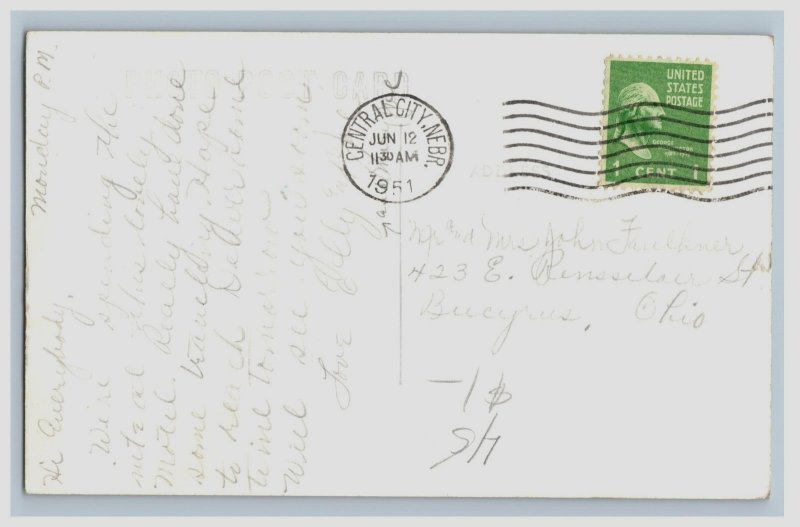 PHOTO POST CARD
Monday P.M.
Hi Everybody,
We're spending the
nite at this lovely
Motel. Really have done
some traveling. Hope
to reach Denver some
time tomorrow
Will see you soon
Love
CENTRAL CITY, NEBR.
JUN 12
11 30 AM
1951
UNITED
STATES
POSTAGE
1 CENT 1
ADDRESS
Mr and Mrs. John Faulkner
423 E. Rensselair St
Bucyrus, Ohio
1-
45